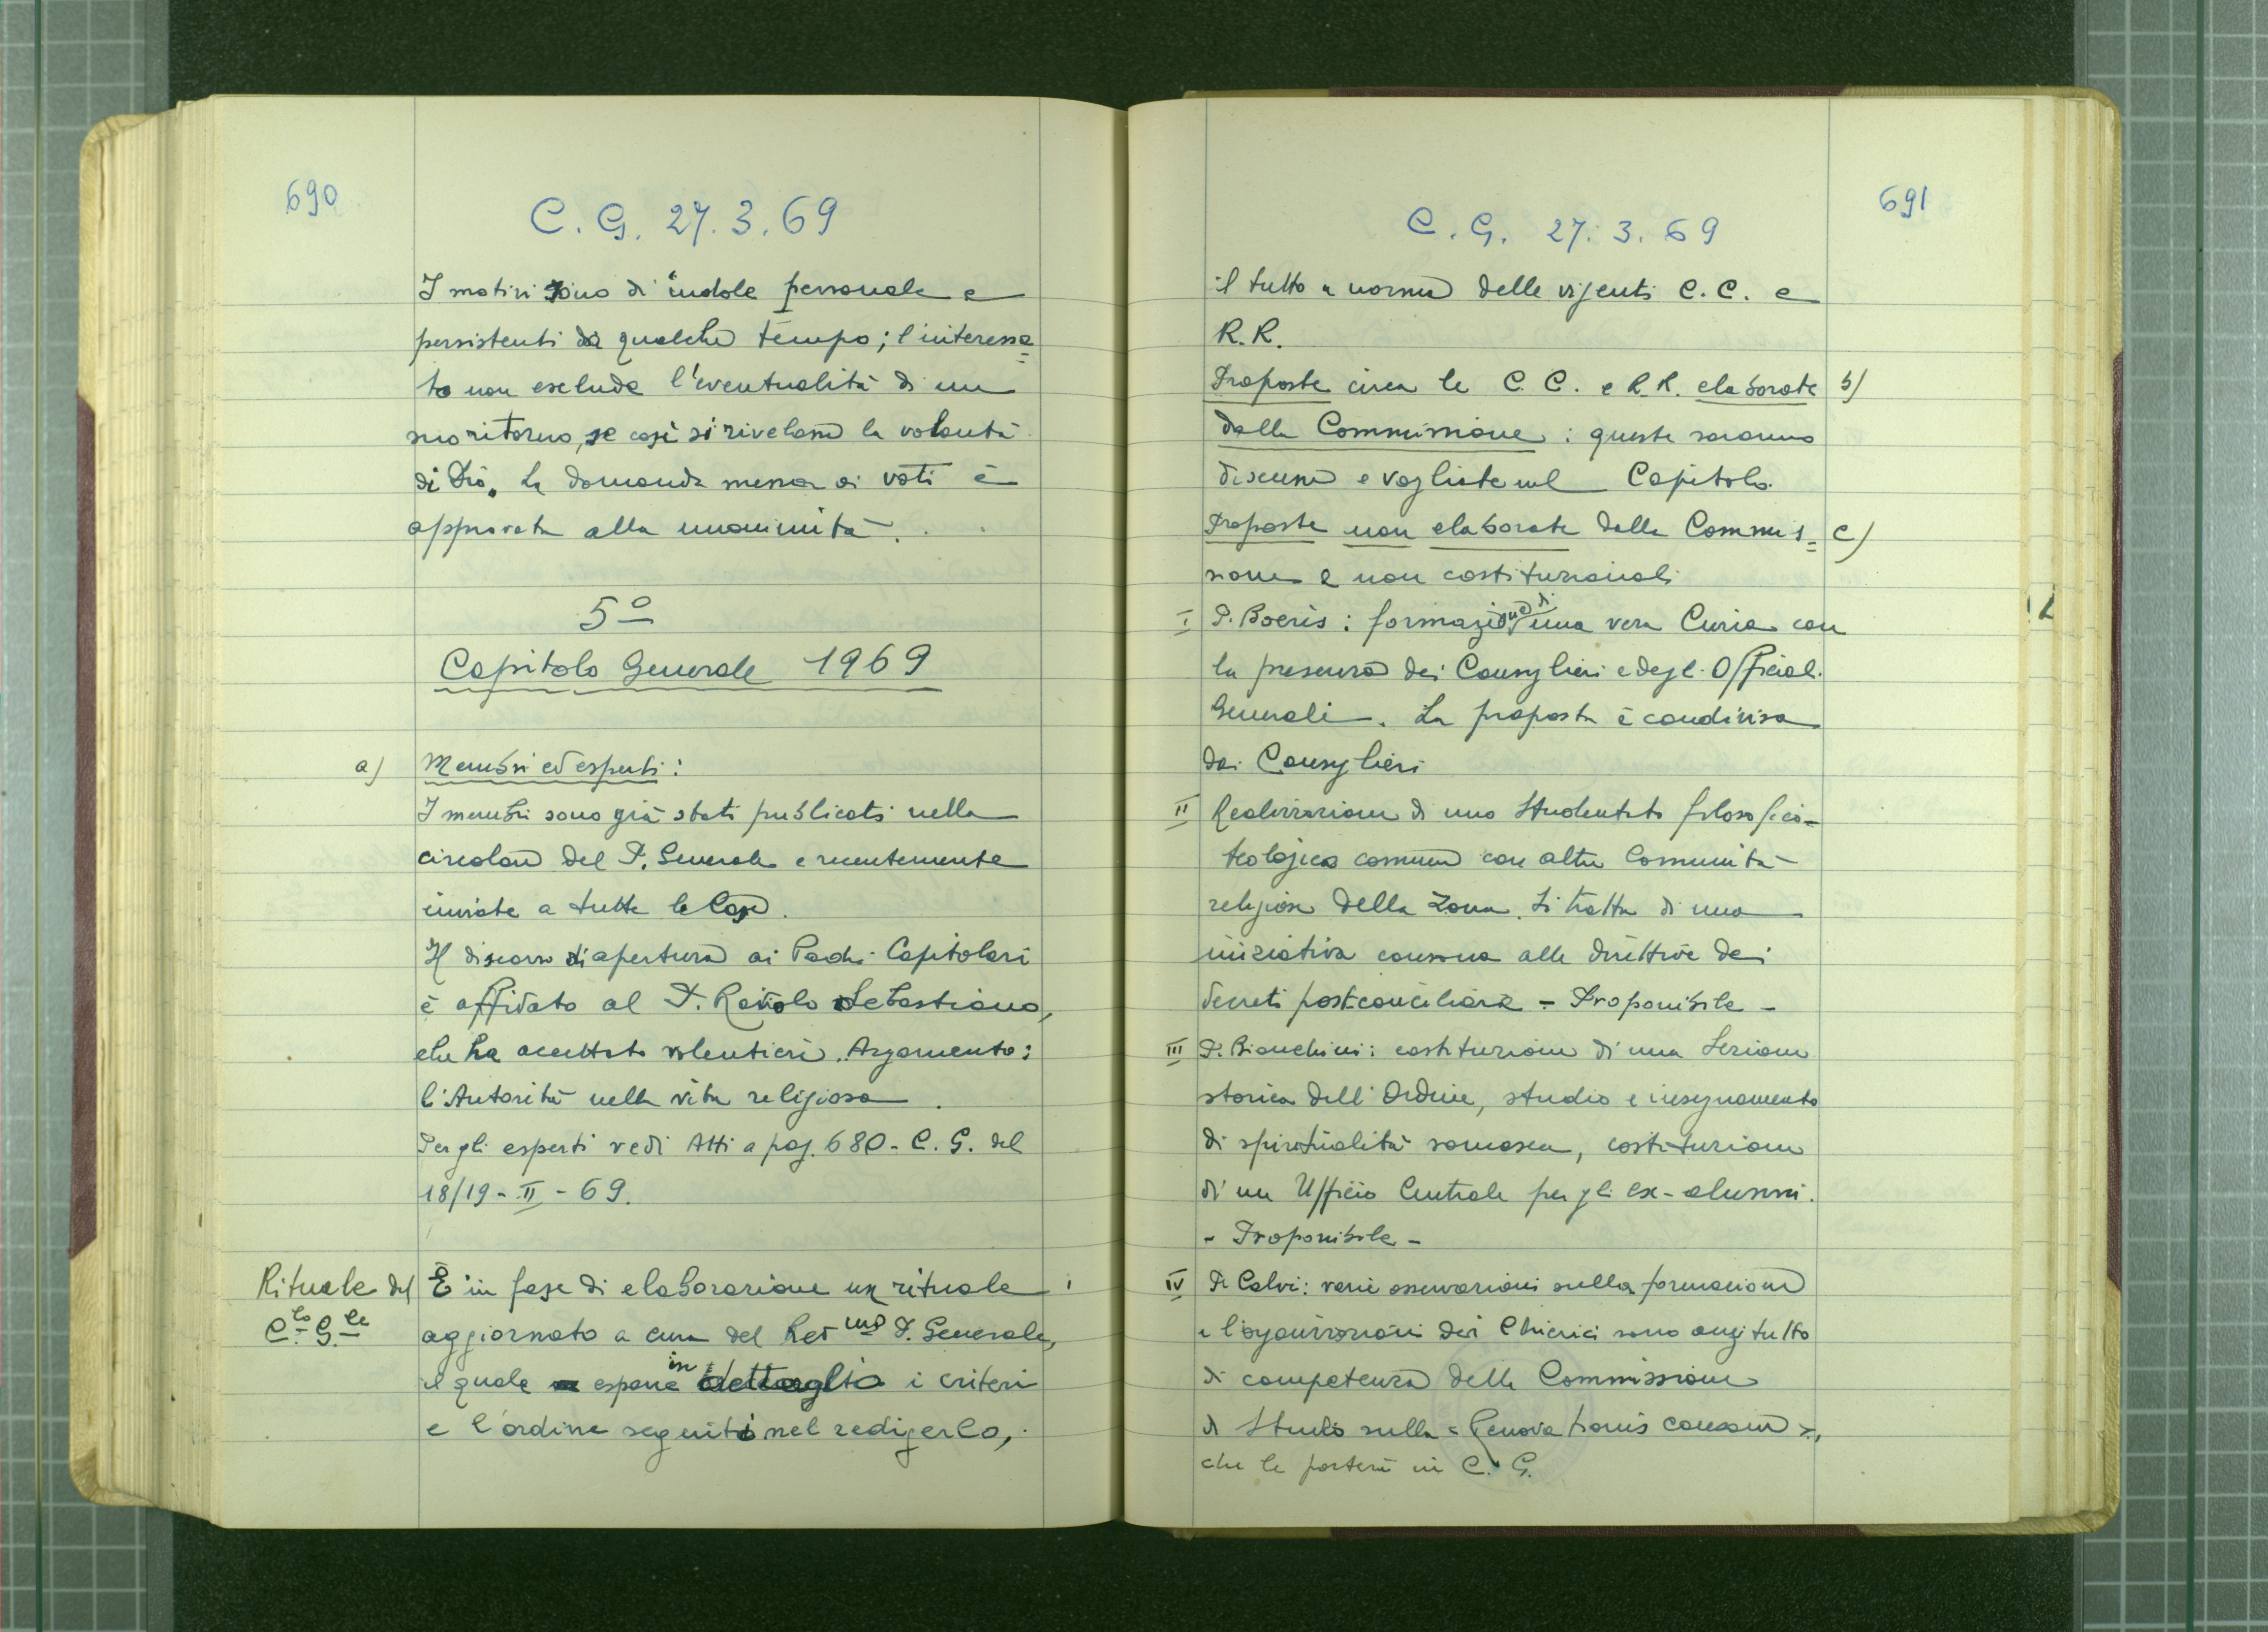 690
C. G. 27. 3. 69
I motivi sono di indole personale e
persistenti da qualche tempo; l'interessa=
to non esclude l'eventualità di un
suo ritorno, se così si rivelasse la volontà
di Dio. La domanda messa ai voti è
approvata alla unanimità.
5º
Capitolo Generale 1969
a) Membri ed esperti:
I membri sono già stati publicati nella
circolare del P. Generale e recentemente
inviate a tutte le Case.
Il discorso di apertura ai Padri Capitolari
è affidato al P. Raviolo Sebastiano,
che ha accettato volentieri. Argomento:
l'Autorità nella vita religiosa.
Per gli esperti vedi Atti a pag. 680 - C. G. del
18/19 - II - 69.
Rituale del
C.lo G.le
È in fase di elaborazione un rituale
aggiornato a cura del Rev.mo P. Generale,
il quale espone in dettaglio i criteri
e l'ordine seguiti nel redigerlo,
691
C. G. 27. 3. 69
il tutto a norma delle vigenti C.C. e
R.R.
Proposte circa le C.C. e R.R. elaborate b)
dalla Commissione: queste saranno
discusse e vagliate nel Capitolo.
Proposte non elaborate dalla Commis= c)
sione e non costituzionali
I P. Boeris: formazione di una vera Curia con
la presenza dei Consiglieri e degli Officiali
Generali. La proposta è condivisa
dai Consiglieri
II Realizzazione di uno Studentato filosofico-
teologico comune con altre Comunità
religiose della Zona. Si tratta di una
iniziativa consona alle direttive dei
decreti post-conciliari - Proponibile -
III P. Bianchini: costituzione di una Sezione
storica dell'Ordine, studio e insegnamento
di spiritualità somasca, costituzione
di un Ufficio Centrale per gli ex-alunni.
- Proponibile -
IV P. Calvi: varie osservazioni sulla formazione
e l'organizzazione dei Chierici sono anzitutto
di competenza della Commissione
di Studio sulla « Renovationis causam »,
che le porterà in C. G.